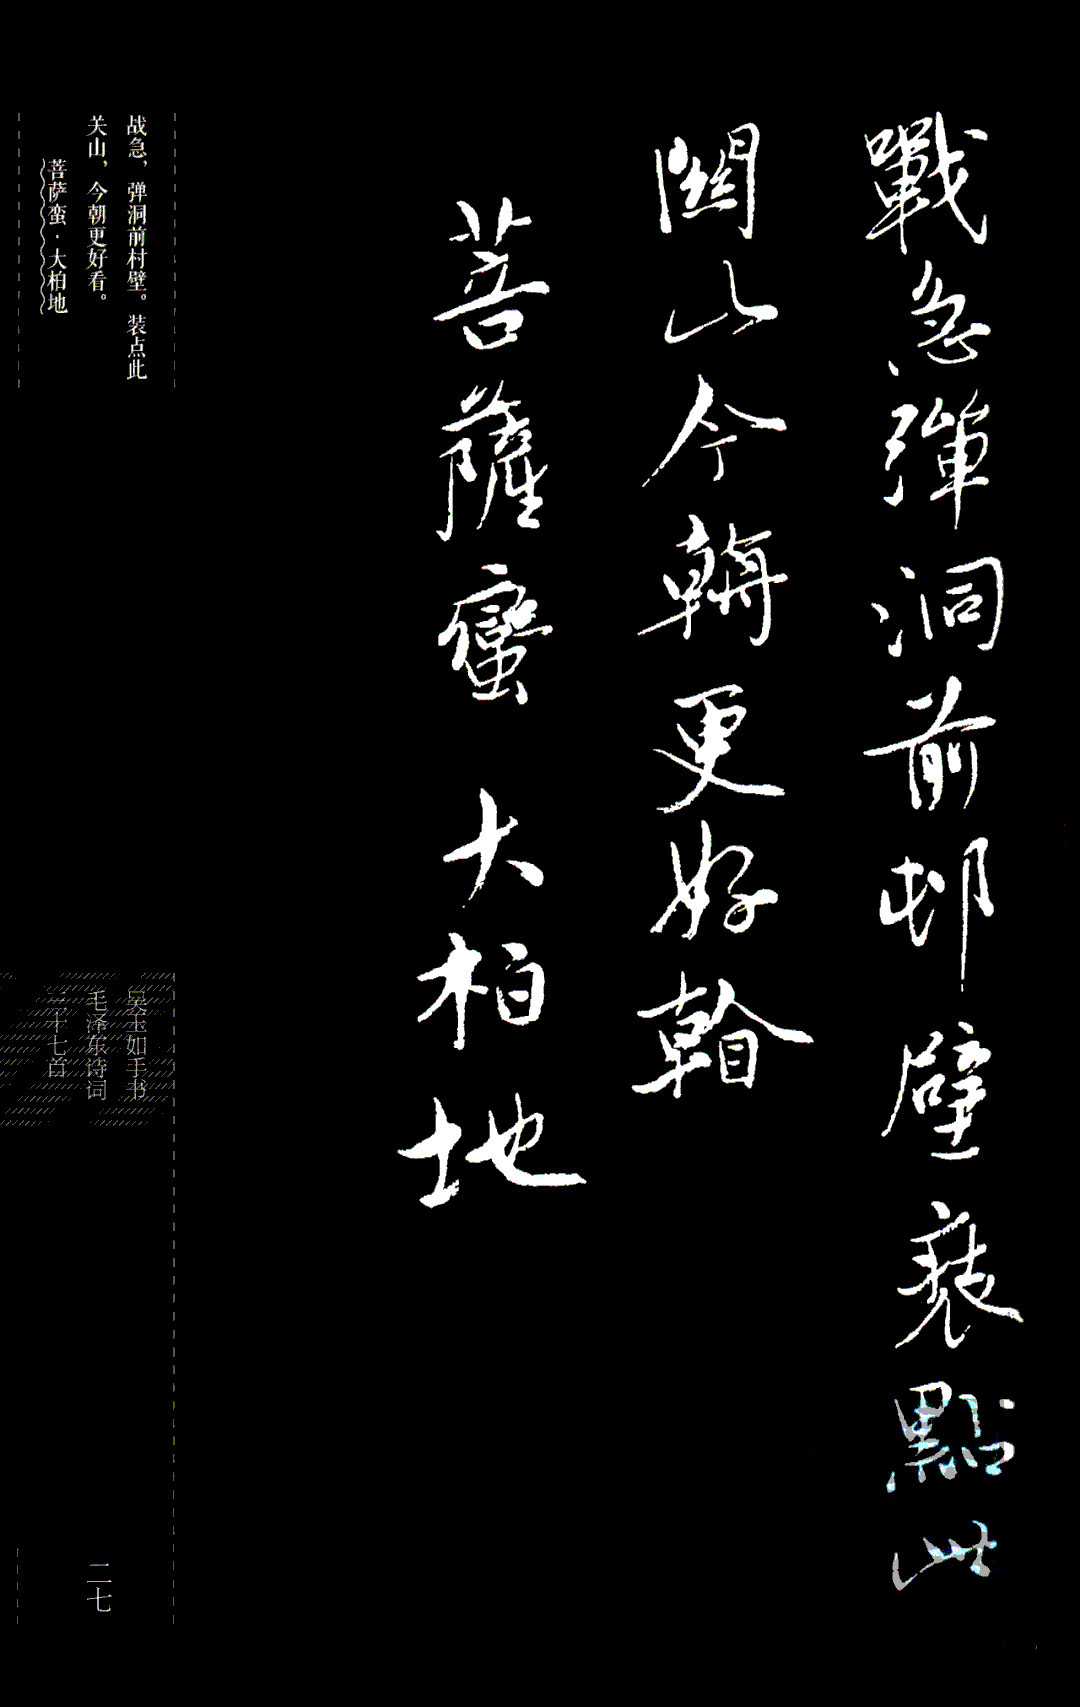 戰急彈洞前邨壁裝點此
關山今朝更好看
菩薩蠻 大柏地
战急，弹洞前村壁。装点此
关山，今朝更好看。
菩萨蛮·大柏地
吴玉如手书
毛泽东诗词
三十七首
二七